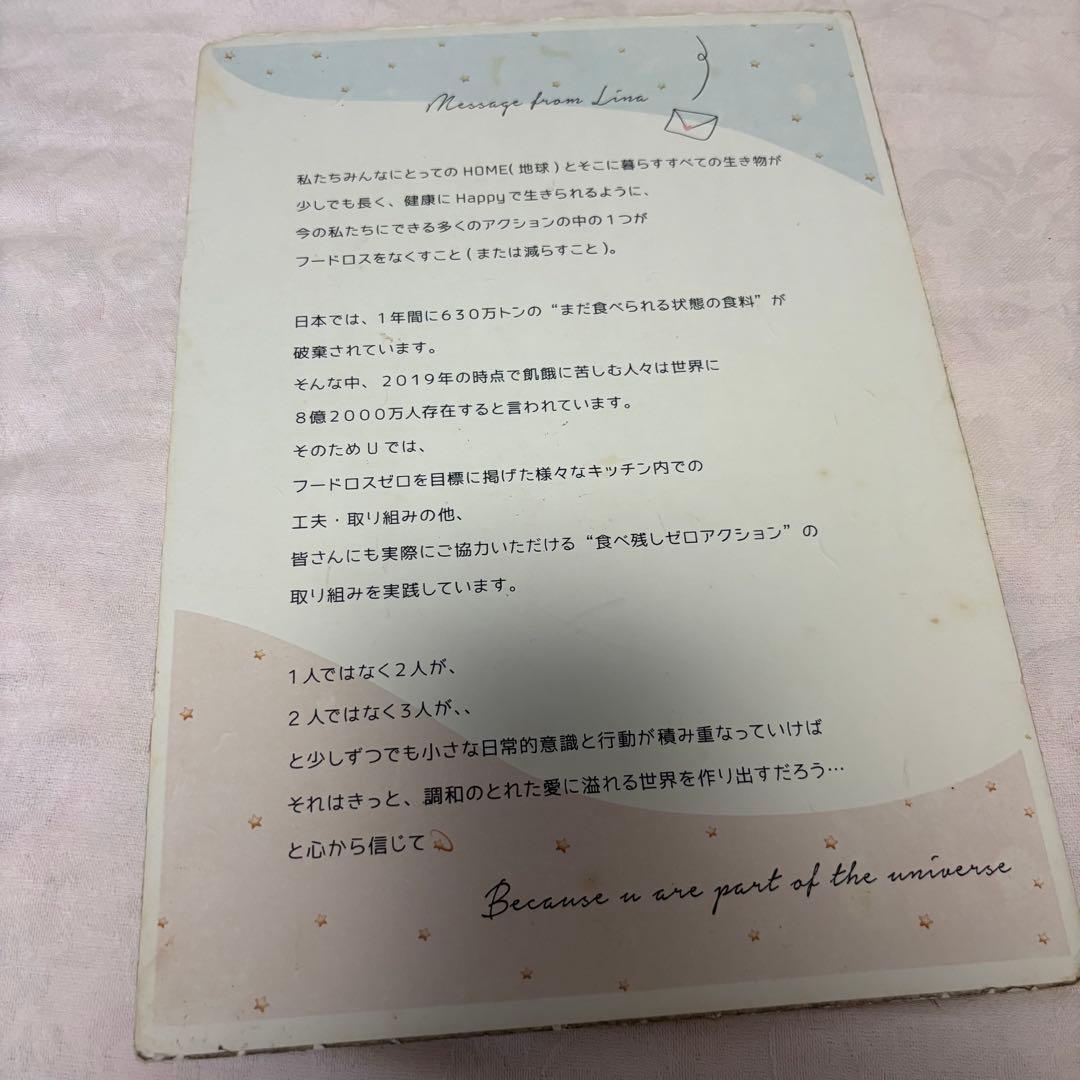 Message from Lina
私たちみんなにとってのHOME(地球)とそこに暮らすすべての生き物が
少しでも長く、健康にHappyで生きられるように、
今の私たちにできる多くのアクションの中の1つが
フードロスをなくすこと(または減らすこと)。
日本では、1年間に630万トンの“まだ食べられる状態の食料”が
破棄されています。
そんな中、2019年の時点で飢餓に苦しむ人々は世界に
8億2000万人存在すると言われています。
そのためUでは、
フードロスゼロを目標に掲げた様々なキッチン内での
工夫・取り組みの他、
皆さんにも実際にご協力いただける“食べ残しゼロアクション”の
取り組みを実践しています。
1人ではなく2人が、
2人ではなく3人が、、
と少しずつでも小さな日常的意識と行動が積み重なっていけば
それはきっと、調和のとれた愛に溢れる世界を作り出すだろう…
と心から信じて
Because u are part of the universe